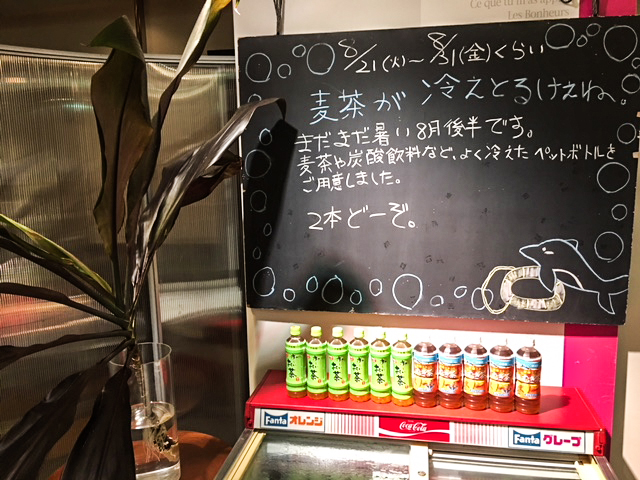 Ce que tu m'as app
Les Bonheurs
8/21(火)〜8/31(金)くらい
麦茶が 冷えとるけぇね。
まだまだ暑い8月後半です。
麦茶や炭酸飲料など、よく冷えたペットボトルを
ご用意しました。
2本どーぞ。
Fanta オレンジ
Coca-Cola
Fanta グレープ